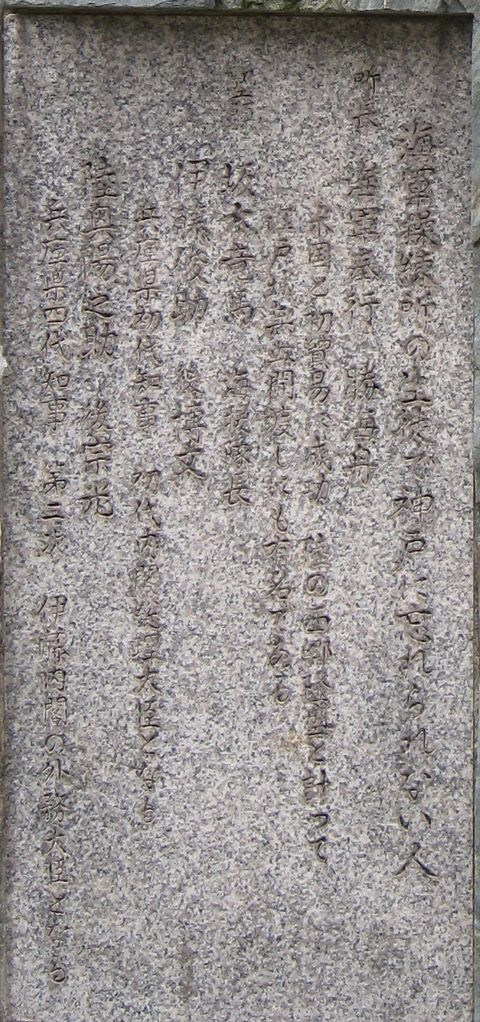 海軍操練所の生徒で神戸に忘れられない人
所長 海軍奉行 勝海舟
米国と初貿易に成功 陸の西郷隆盛と計って
江戸お城明渡しにも有名である
坂本竜馬 海援隊長
伊藤俊助 後博文
兵庫県初代知事 初代内閣総理大臣となる
陸奥陽之助 後宗光
兵庫県四代知事 第二次 伊藤内閣の外務大臣となる